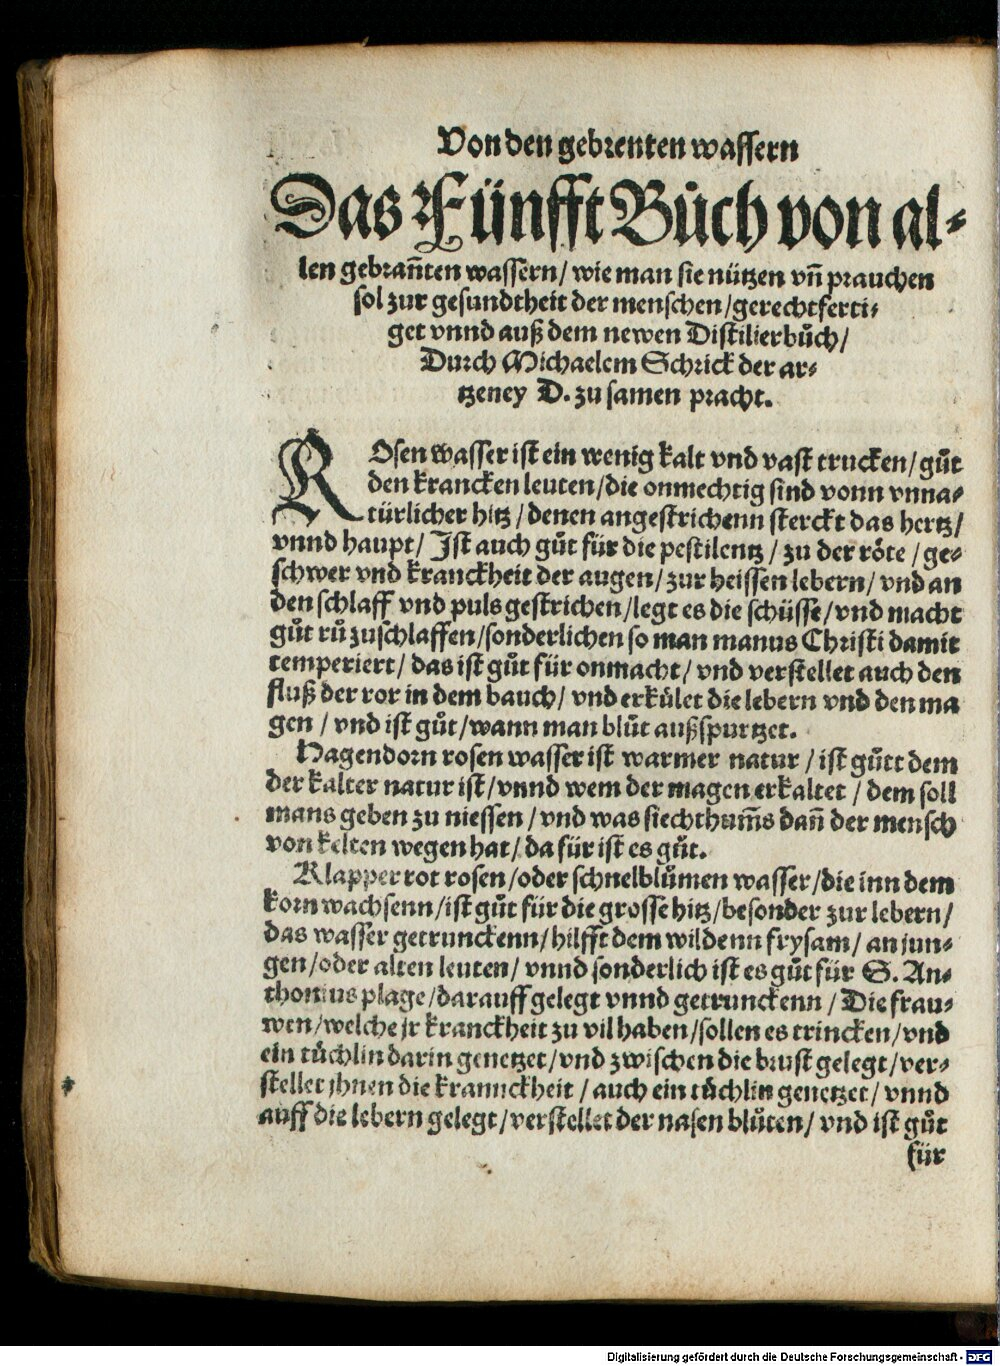 Von den gebrenten wassern
Das Fünfft Bůch von al-
len gebrañten wassern/ wie man sie nützen vñ prauchen
sol zur gesundtheit der menschen/gerechtferti-
get vnnd auß dem newen Distilierbůch/
Durch Michaelem Schrick der ar-
tzeney D. zu samen pracht.
ROsen wasser ist ein wenig kalt vnd vast trucken/gůt
den krancken leuten/die onmechtig sind vonn vnna-
türlicher hitz/denen angestrichenn sterckt das hertz/
vnnd haupt/ Ist auch gůt für die pestilentz/ zu der röte/ge-
schwer vnd kranckheit der augen/zur heissen lebern/vnd an
den schlaff vnd puls gestrichen/legt es die schüsse/vnd macht
gůt rů zuschlaffen/sonderlichen so man manus Christi damit
temperiert/ das ist gůt für onmacht/ vnd verstellet auch den
fluß der ror in dem bauch/ vnd erkület die lebern vnd den ma
gen / vnd ist gůt/wann man blůt außspurtzet.
Hagendorn rosen wasser ist warmer natur / ist gůtt dem
der kalter natur ist/vnnd wem der magen erkaltet / dem soll
mans geben zu niessen/ vnd was siechthum̃s dañ der mensch
von kelten wegen hat/ da für ist es gůt.
Klapper rot rosen/oder schnelblůmen wasser/die inn dem
korn wachsenn/ist gůt für die grosse hitz/besonder zur lebern/
das wasser getrunckenn/hilfft dem wildenn frysam/ an jun-
gen/oder alten leuten/ vnnd sonderlich ist es gůt für S. An-
thonius plage/darauff gelegt vnnd getrunckenn / Die frau-
wen/welche jr kranckheit zu vil haben/sollen es trincken/vnd
ein tůchlin darin genetzet/vnd zwischen die brust gelegt/ver-
stellet jhnen die kranncheit / auch ein tůchlin genetzet/ vnnd
auff die lebern gelegt/verstellet der nasen blůten/ vnd ist gůt
für
Digitalisierung gefördert durch die Deutsche Forschungsgemeinschaft - DFG